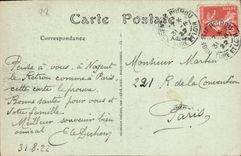 Carte Postale
Correspondance
Pense à vous, à Nogent
le Rotrou comme à Paris
cette carte le prouve
Bonne santé pour vous et
votre famille
Meilleur souvenir
amical
31.8.22
Monsieur Martin
221 R. de la Convention
Paris